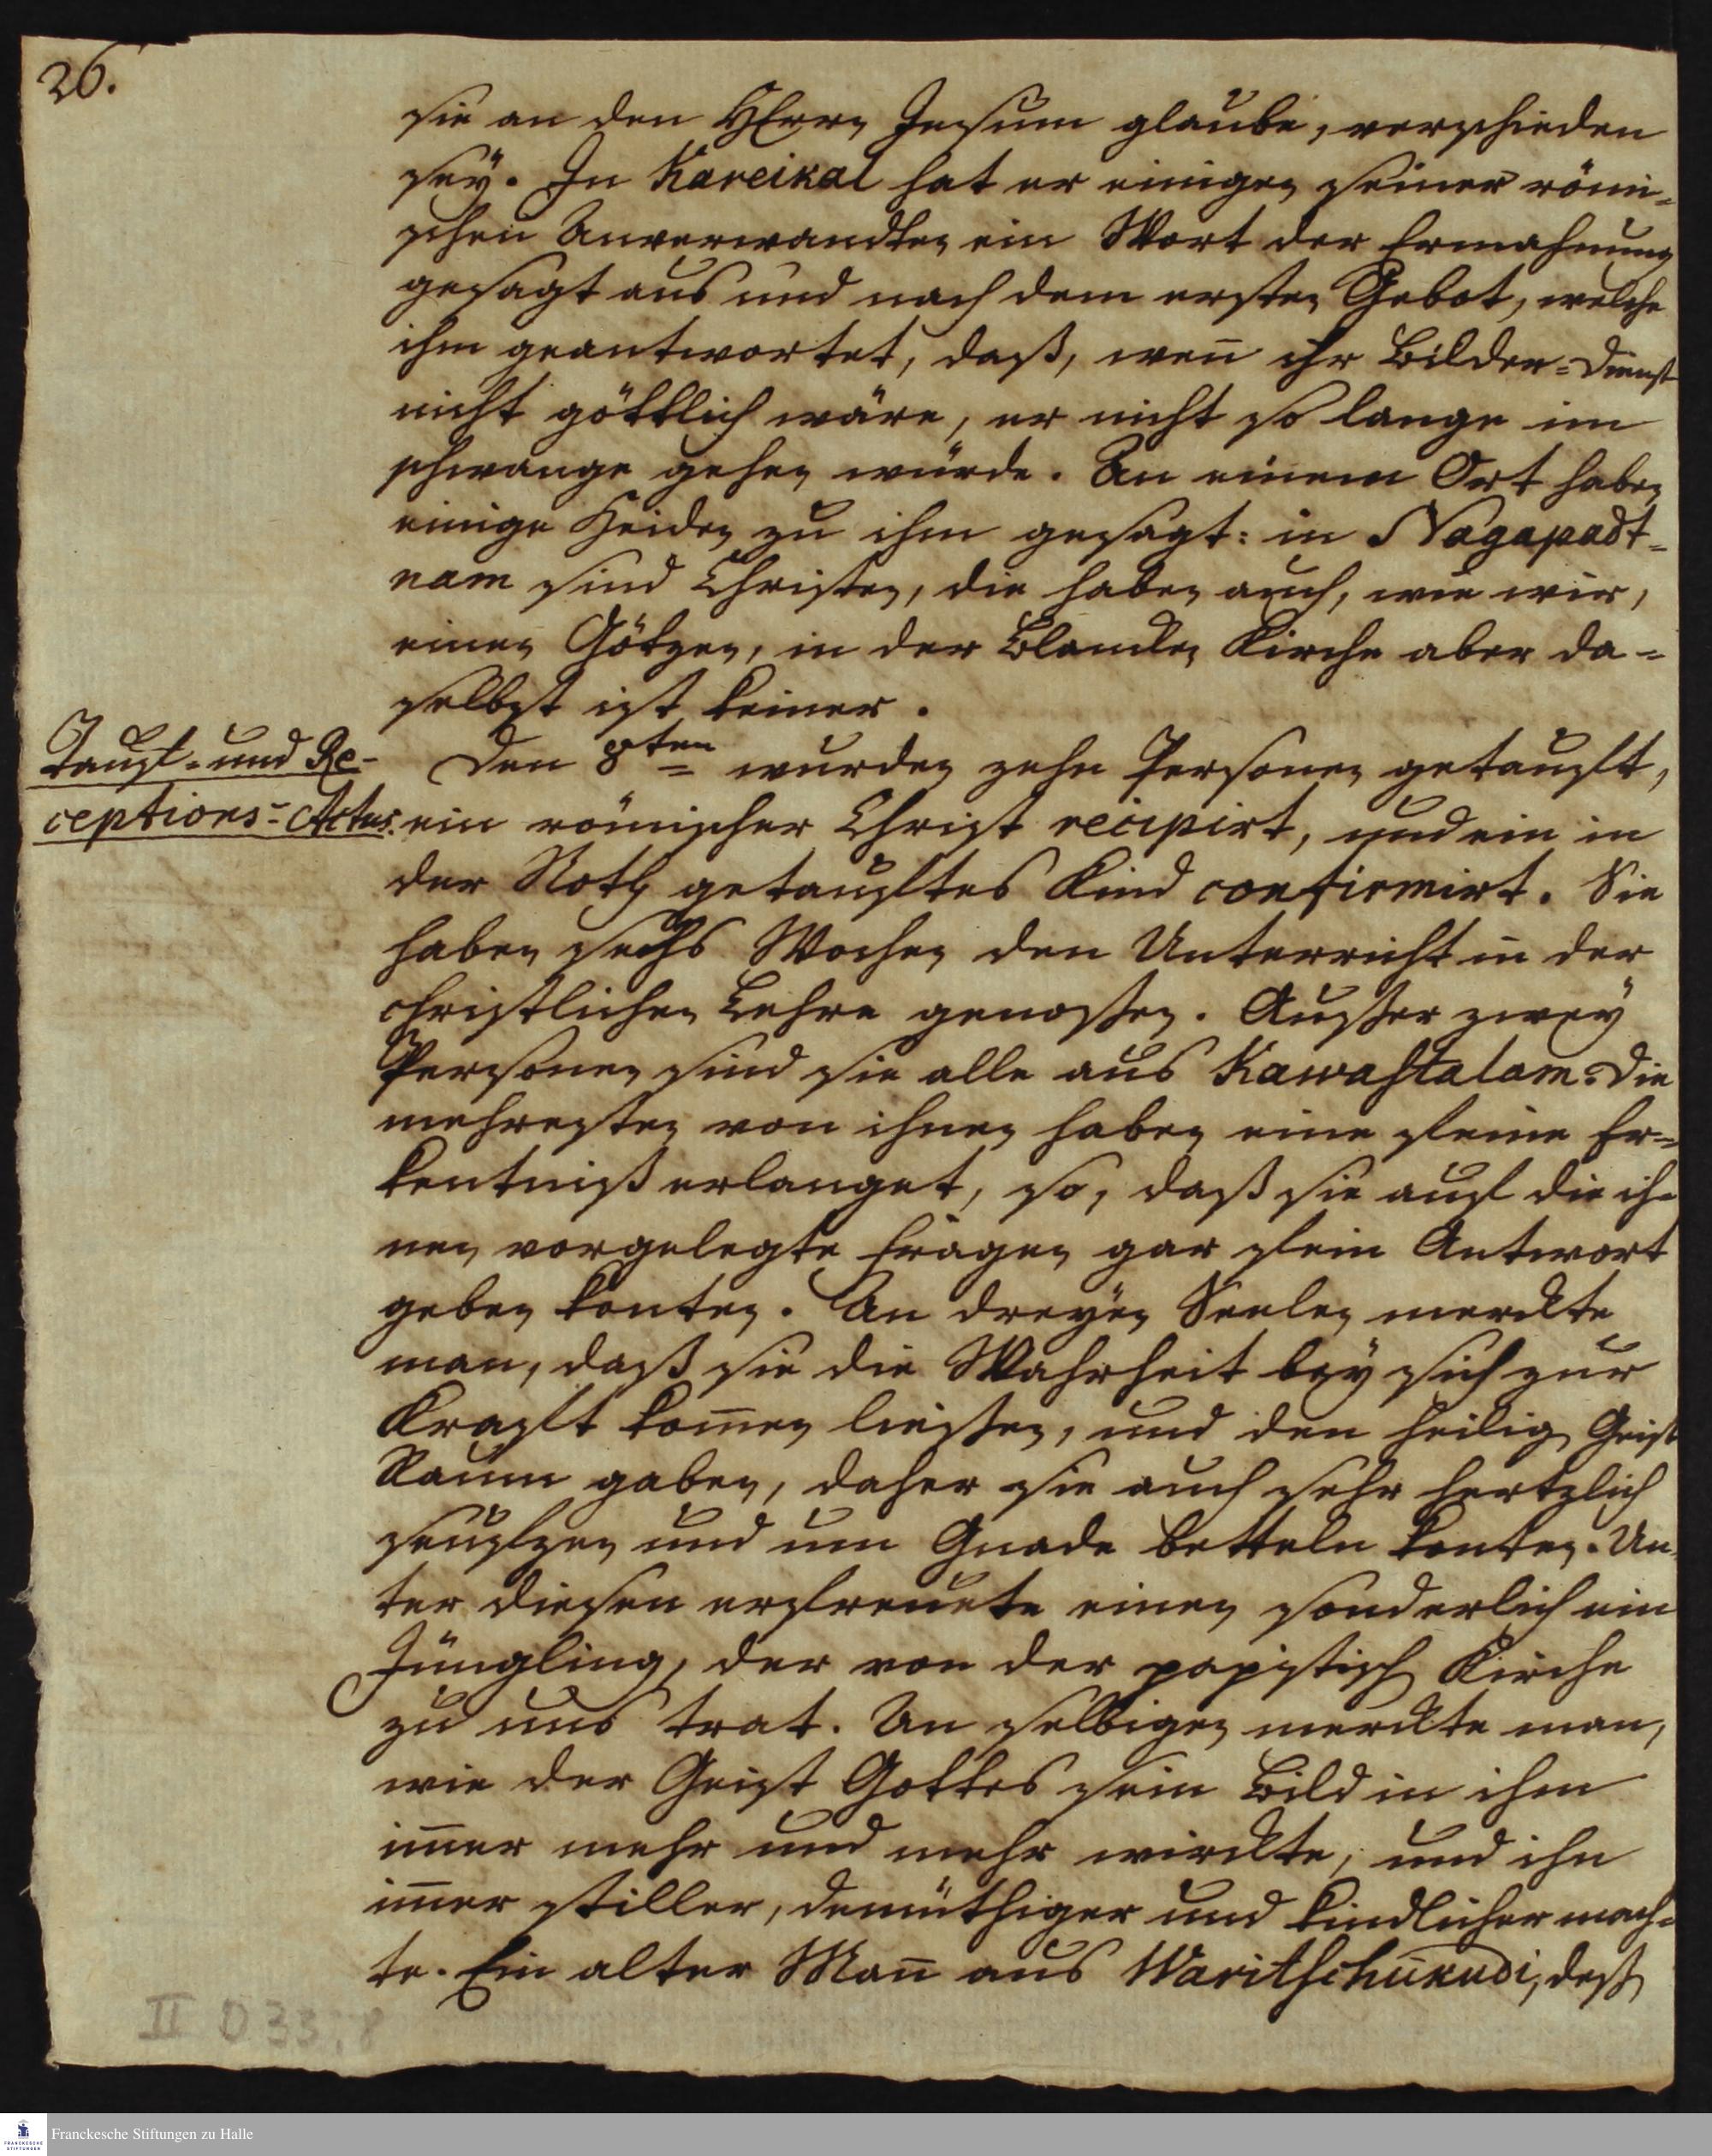 26.
sie an den HErrn Jesum glaube, verschieden
sey. In Kareikal hat er einigen seiner römi=
schen Anverwandten ein Wort der Ermahnung
gesagt aus und nach dem ersten Gebot, welche
ihm geantwortet, daß, wen̄ ihr Bilder=Dienst
nicht göttlich wäre, er nicht so lange im
schwange gehen würde. An einem Ort haben
einige Heiden zu ihm gesagt: in Nagapadt=
nam sind Christen, die haben auch, wie wir,
einen Götzen, in der Blancken Kirche aber da=
selbst ist keiner.
Tauff= und Re=
ceptions=Actus.
Den 8ten wurden zehn Personen getaufft,
ein römischer Christ recipirt, und ein in
der Noth getaufftes Kind confirmirt. Sie
haben sechs Wochen den Unterricht in der
christlichen Lehre genossen. Ausser zwey
Personen sind sie alle aus Kawastalam. Die
mehresten von ihnen haben eine feine Er=
kentniß erlanget, so, daß sie auf die ih=
nen vorgelegte Fragen gar fein Antwort
geben konten. An dreyen Seelen merckte
man, daß sie die Wahrheit bey sich zur
Krafft kom̄en liessen, und den heilig Geist
Raum gaben, daher sie auch sehr hertzlich
seuffzen und um Gnade betteln konten. Un=
ter diesen erfreuete einen sonderlich ein
Jüngling, der von der papistisch Kirche
zu uns trat. An selbigen merckte man,
wie der Geist Gottes sein Bild in ihm
im̄er mehr und mehr wirckte, und ihn
im̄er stiller, demüthiger und kindlicher mach=
te. Ein alter Man̄ aus Waritschukudi, dess
II D 33, 8
Franckesche Stiftungen zu Halle